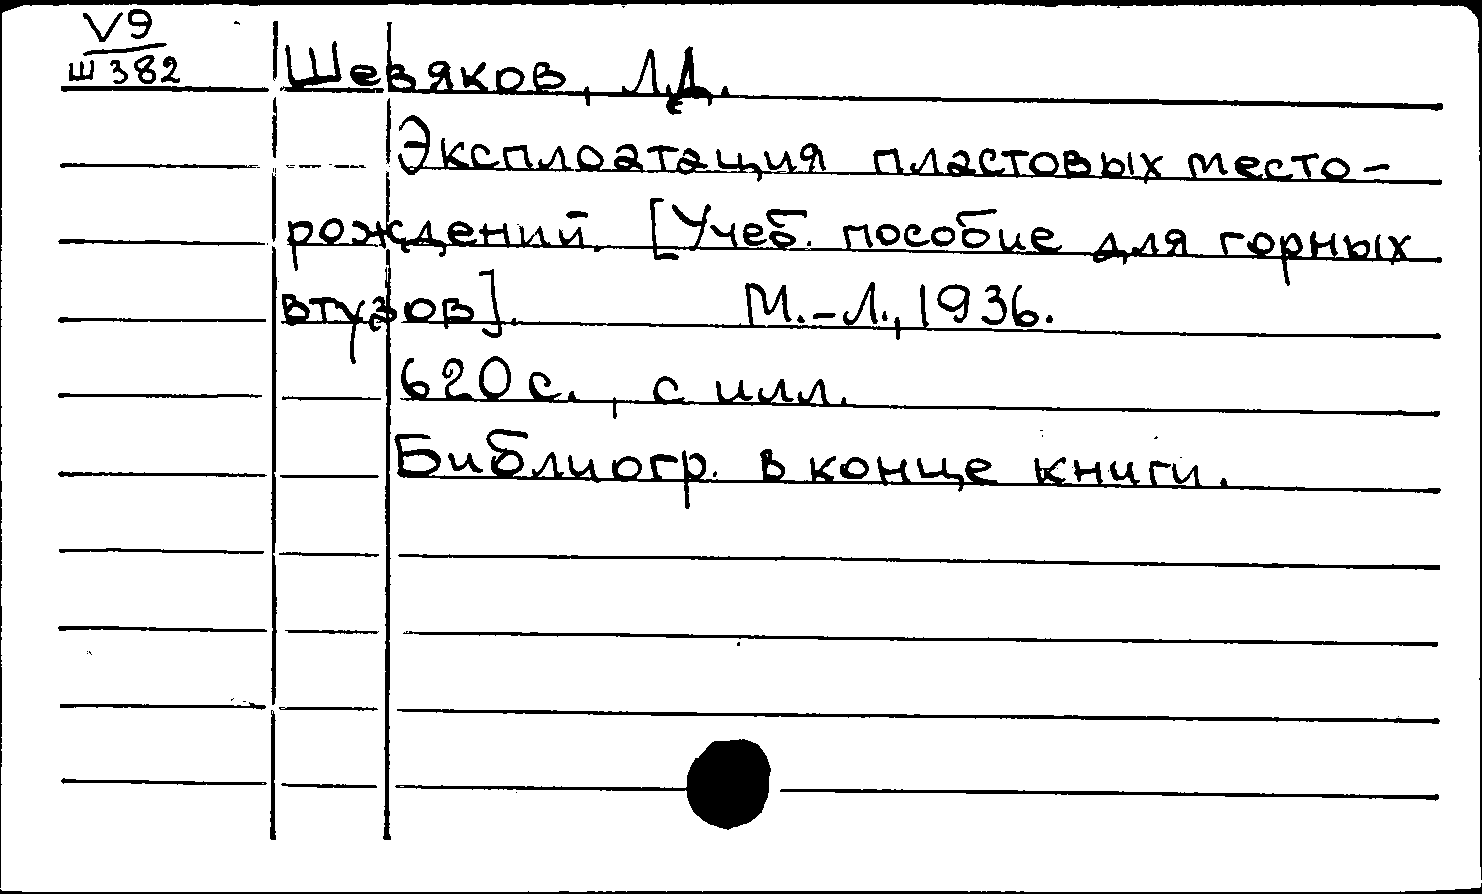 V9
Ш382
Шевяков, Л.Д.
Эксплоатация пластовых место-
рождений. [Учеб. пособие для горных
втузов]. М.-Л., 1936.
620 с., с илл.
Библиогр. в конце книги.